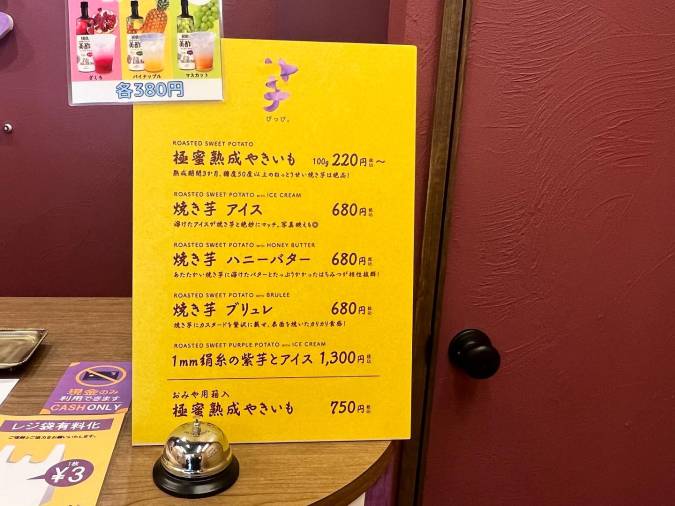 美酢
美酢
美酢
ざくろ
パイナップル
マスカット
各380円
芋
ぴっぴ。
ROASTED SWEET POTATO
極蜜熟成やきいも 100g 220円税込〜
熟成期間3か月。糖度50度以上のねっとりせい焼き芋は絶品!
ROASTED SWEET POTATO with ICE CREAM
焼き芋 アイス 680円税込
溶けたアイスが焼き芋と絶妙にマッチ。写真映えも◎
ROASTED SWEET POTATO with HONEY BUTTER
焼き芋 ハニーバター 680円税込
あたたかい焼き芋に溶けたバターとたっぷりかかったはちみつが相性抜群!
ROASTED SWEET POTATO with BRULEE
焼き芋 ブリュレ 680円税込
焼き芋にカスタードを贅沢に載せ、表面を焼いたカリカリ食感!
ROASTED SWEET PURPLE POTATO with ICE CREAM
1mm絹糸の紫芋とアイス 1,300円税込
おみや用箱入
極蜜熟成やきいも 750円税込
現金のみ
利用できます
CASH ONLY
レジ袋有料化
ご理解とご協力をお願いいたします。
1枚
¥3